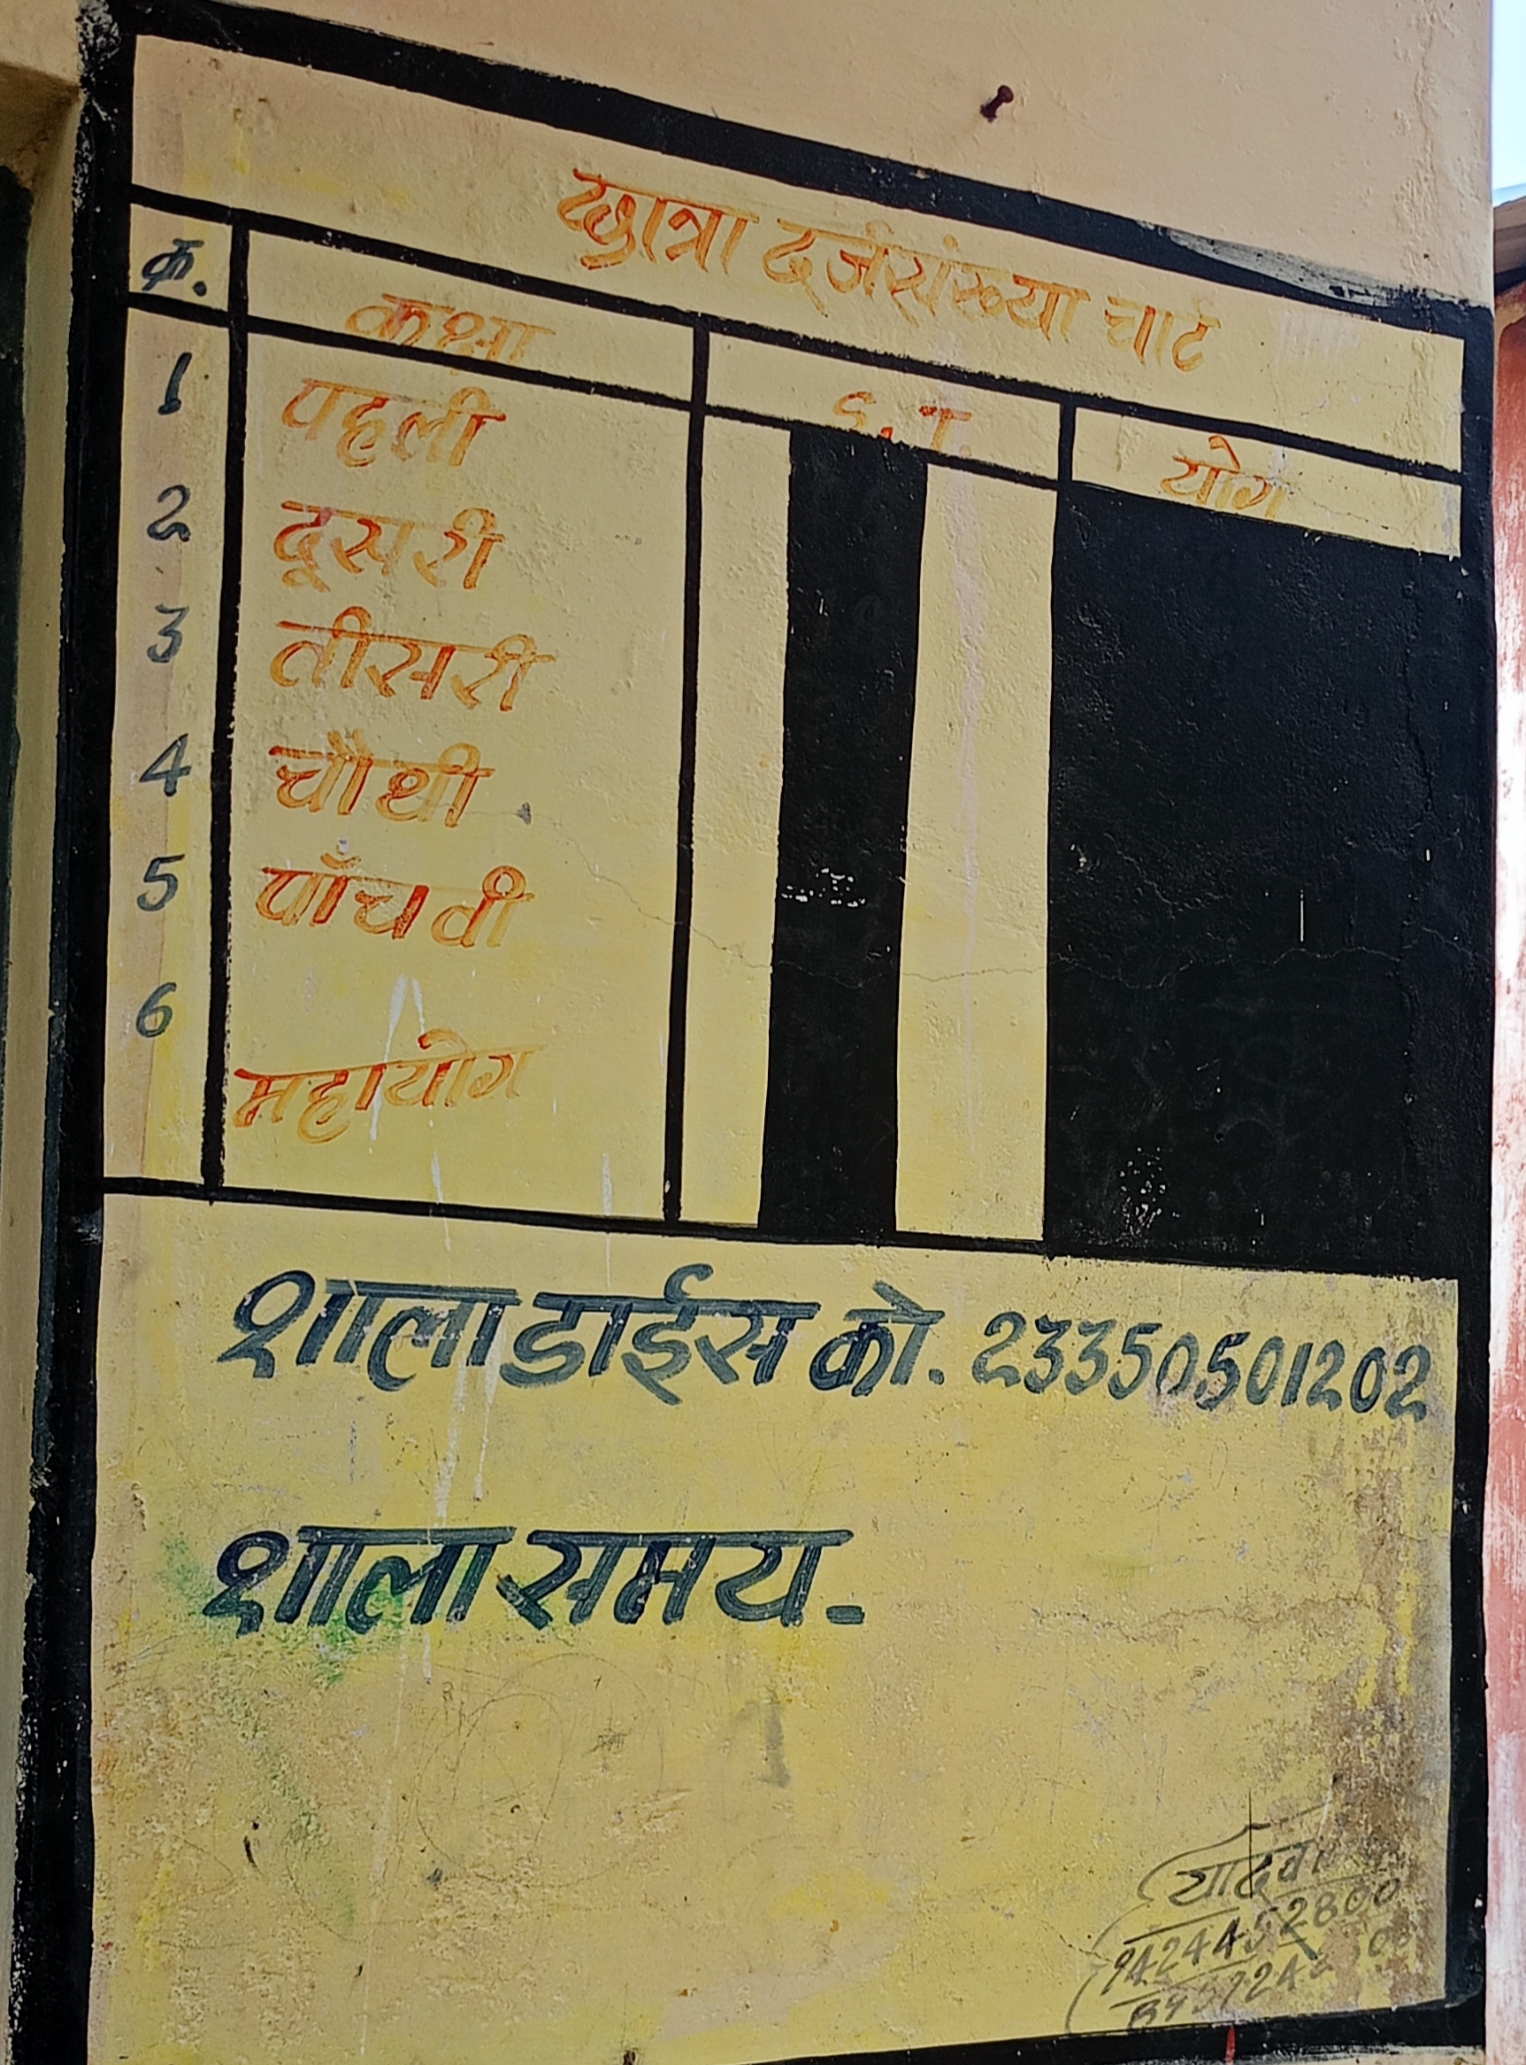 छात्रा दर्जसंख्या चार्ट
क्र. कक्षा S.T. योग
1 पहली
2 दूसरी
3 तीसरी
4 चौथी
5 पाँचवी
6
महायोग
शाला डाईस को. 23350501202
शाला समय.-
यादव
9424452800